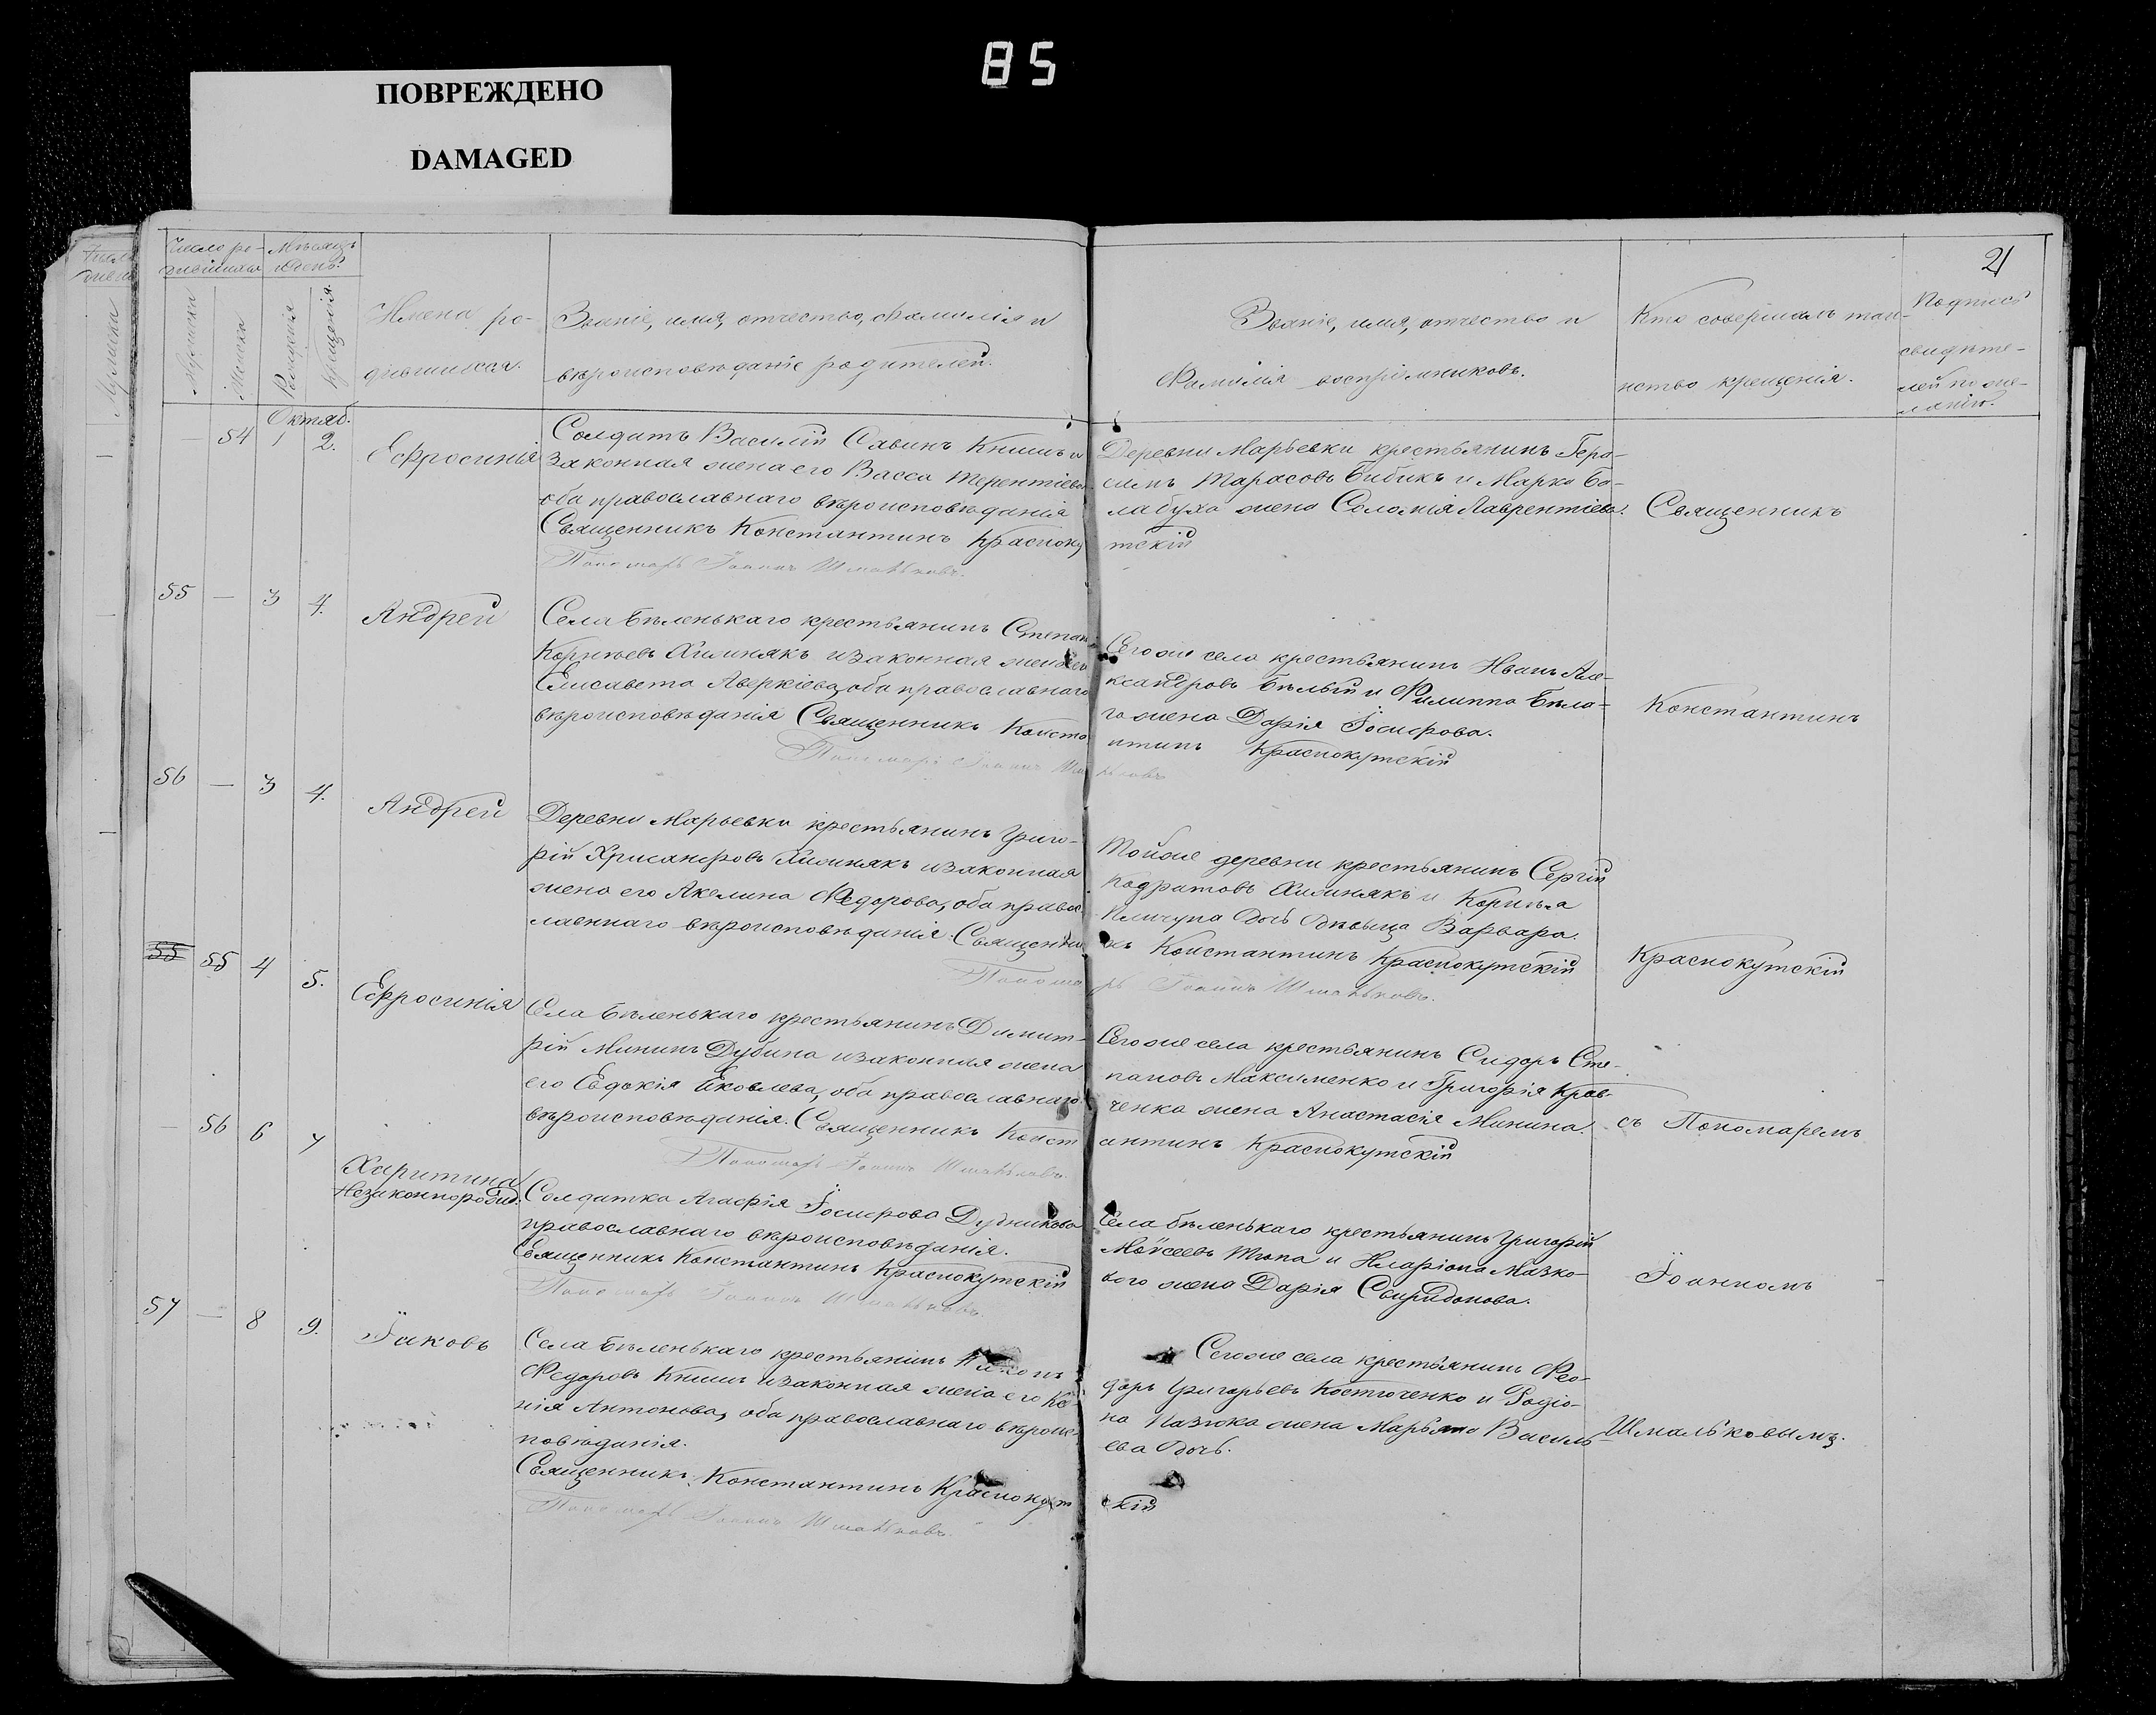 85
ПОВРЕЖДЕНО
DAMAGED
21
Число ро-
дившихся
Мѣсяцъ
и день.
Мужеска
Женска
Рожденія
Крещенія.
Имена ро-
дившихся.
Званіе, имя, отчество, фамилія и
вѣроисповѣданіе родителей.
Званіе, имя, отчество и
Фамилія воспріемниковъ.
Кто совершалъ таи-
нство крещенія.
Подпись
свидѣте-
лей по же-
ланію.
Октяб.
— 54 1 2.
Ефросинія
Солдатъ Василій Савинъ Книшъ и
законная жена его Васса Терентіева
оба православнаго вѣроисповѣданія
Священникъ Константинъ Красноку
Пономарь Іоаннъ Шмальковъ.
Деревни Марьевки крестьянинъ Гера-
симъ Тарасовъ Бибикъ и Марка Ба-
лабуха жена Соломія Лаврентіева.
тскій
Священникъ
55 — 3 4.
Андрей
Села Бѣленькаго крестьянинъ Степанъ
Корнѣевъ Хижнякъ и законная жена его
Елисавета Аверкіева, оба православнаго
вѣроисповѣданія Священникъ Конста
Пономарь Іоаннъ Шма
Сего же села крестьянинъ Иванъ Але-
ксандровъ Бѣлый и Филиппа Бѣла-
го жена Дарія Іосифова.
нтинъ Краснокутскій
льковъ
Константинъ
56 — 3 4.
Андрей
Деревни Марьевки крестьянинъ Григо-
рій Хрисанфовъ Хижнякъ и законная
жена его Акелина Федорова, оба право-
славннаго вѣроисповѣданія. Священни
Понома
Той же деревни крестьянинъ Сергій
Кодратовъ Хижнякъ и Корнѣя
дочь дѣвица Варвара.
къ Константинъ Краснокутскій
рь Іоаннъ Шмальковъ.
Краснокутскій
55 55 4 5.
Ефросинія
Села Бѣленькаго крестьянинъ Димит-
рій Мининъ Дубина и законная жена
его Евдокія Яковлева, оба православнаго
вѣроисповѣданія. Священникъ Конст
Пономарь Іоаннъ Шмальковъ.
Сего же села крестьянинъ Сидоръ Сте-
пановъ Максименко и Григорія Крав-
ченка жена Анастасія Минина.
антинъ Краснокутскій
съ Пономаремъ
— 56 6 7
Харитина
Незаконнорожд.
Солдатка Агафія Іосифова Дудникова
православнаго вѣроисповѣданія.
Священникъ Константинъ Краснокутскій
Пономарь Іоаннъ Шмальковъ.
Села Бѣленькаго крестьянинъ Григорій
Моѵсеевъ Тюпа и Иларіона Мазко-
вого жена Дарія Свиридонова.
Іоанномъ
57 — 8 9.
Іаковъ
Села Бѣленькаго крестьянинъ
Федоровъ Книшъ и законная жена его Ксе
нія Антонова, оба православнаго вѣроис-
повѣданія.
Священникъ Константинъ Краснокут
Пономарь Іоаннъ Шмальковъ.
Сего же села крестьянинъ Фео-
доръ Григорьевъ Костюченко и Родіо-
на Пазюка жена Марьяна Василь-
ева дочь.
скій
Шмальковымъ.